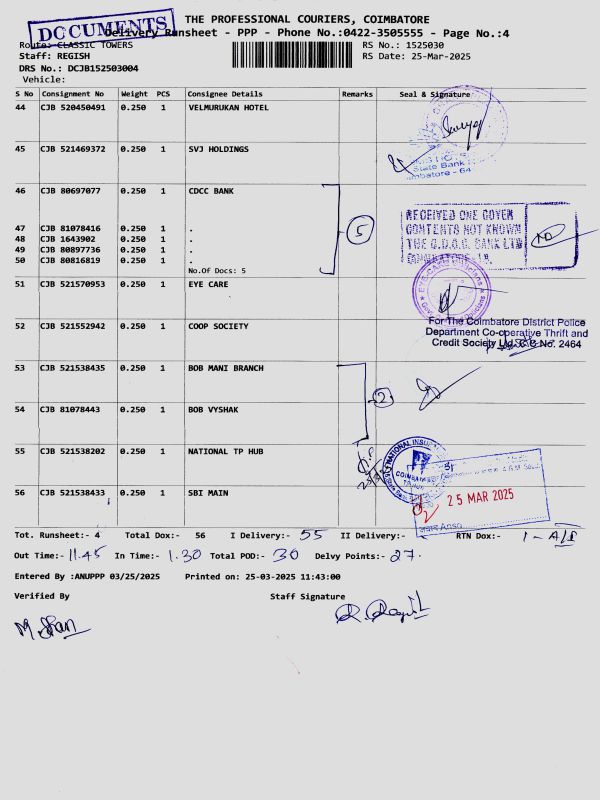 DOCUMENTS
THE PROFESSIONAL COURIERS, COIMBATORE
Delivery Runsheet - PPP - Phone No.:0422-3505555 - Page No.:4
Route: CLASSIC TOWERS
RS No.: 1525030
Staff: REGISH
RS Date: 25-Mar-2025
DRS No.: DCJB152503004
Vehicle:
S No Consignment No Weight PCS Consignee Details Remarks Seal & Signature
44 CJB 520450491 0.250 1 VELMURUKAN HOTEL
45 CJB 521469372 0.250 1 SVJ HOLDINGS
State Bank
46 CJB 80697077 0.250 1 CDCC BANK
47 CJB 81078416 0.250 1 .
48 CJB 1643902 0.250 1 .
49 CJB 80897736 0.250 1 .
50 CJB 80816819 0.250 1 .
No.Of Docs: 5
5
RECEIVED ONE COVER
CONTENTS NOT KNOWN
THE C.D.C.C. BANK LTD
51 CJB 521570953 0.250 1 EYE CARE
52 CJB 521552942 0.250 1 COOP SOCIETY
For The Coimbatore District Police
Department Co-operative Thrift and
Credit Society Ltd. C C No. 2464
53 CJB 521538435 0.250 1 BOB MANI BRANCH
2
54 CJB 81078443 0.250 1 BOB VYSHAK
55 CJB 521538202 0.250 1 NATIONAL TP HUB
56 CJB 521538433 0.250 1 SBI MAIN
25 MAR 2025
Tot. Runsheet:- 4 Total Dox:- 56 I Delivery:- 55 II Delivery:- RTN Dox:-
Out Time:- 11.45 In Time:- 1.30 Total POD:- 30 Delvy Points:- 27.
Entered By :ANUPPP 03/25/2025 Printed on: 25-03-2025 11:43:00
Verified By Staff Signature